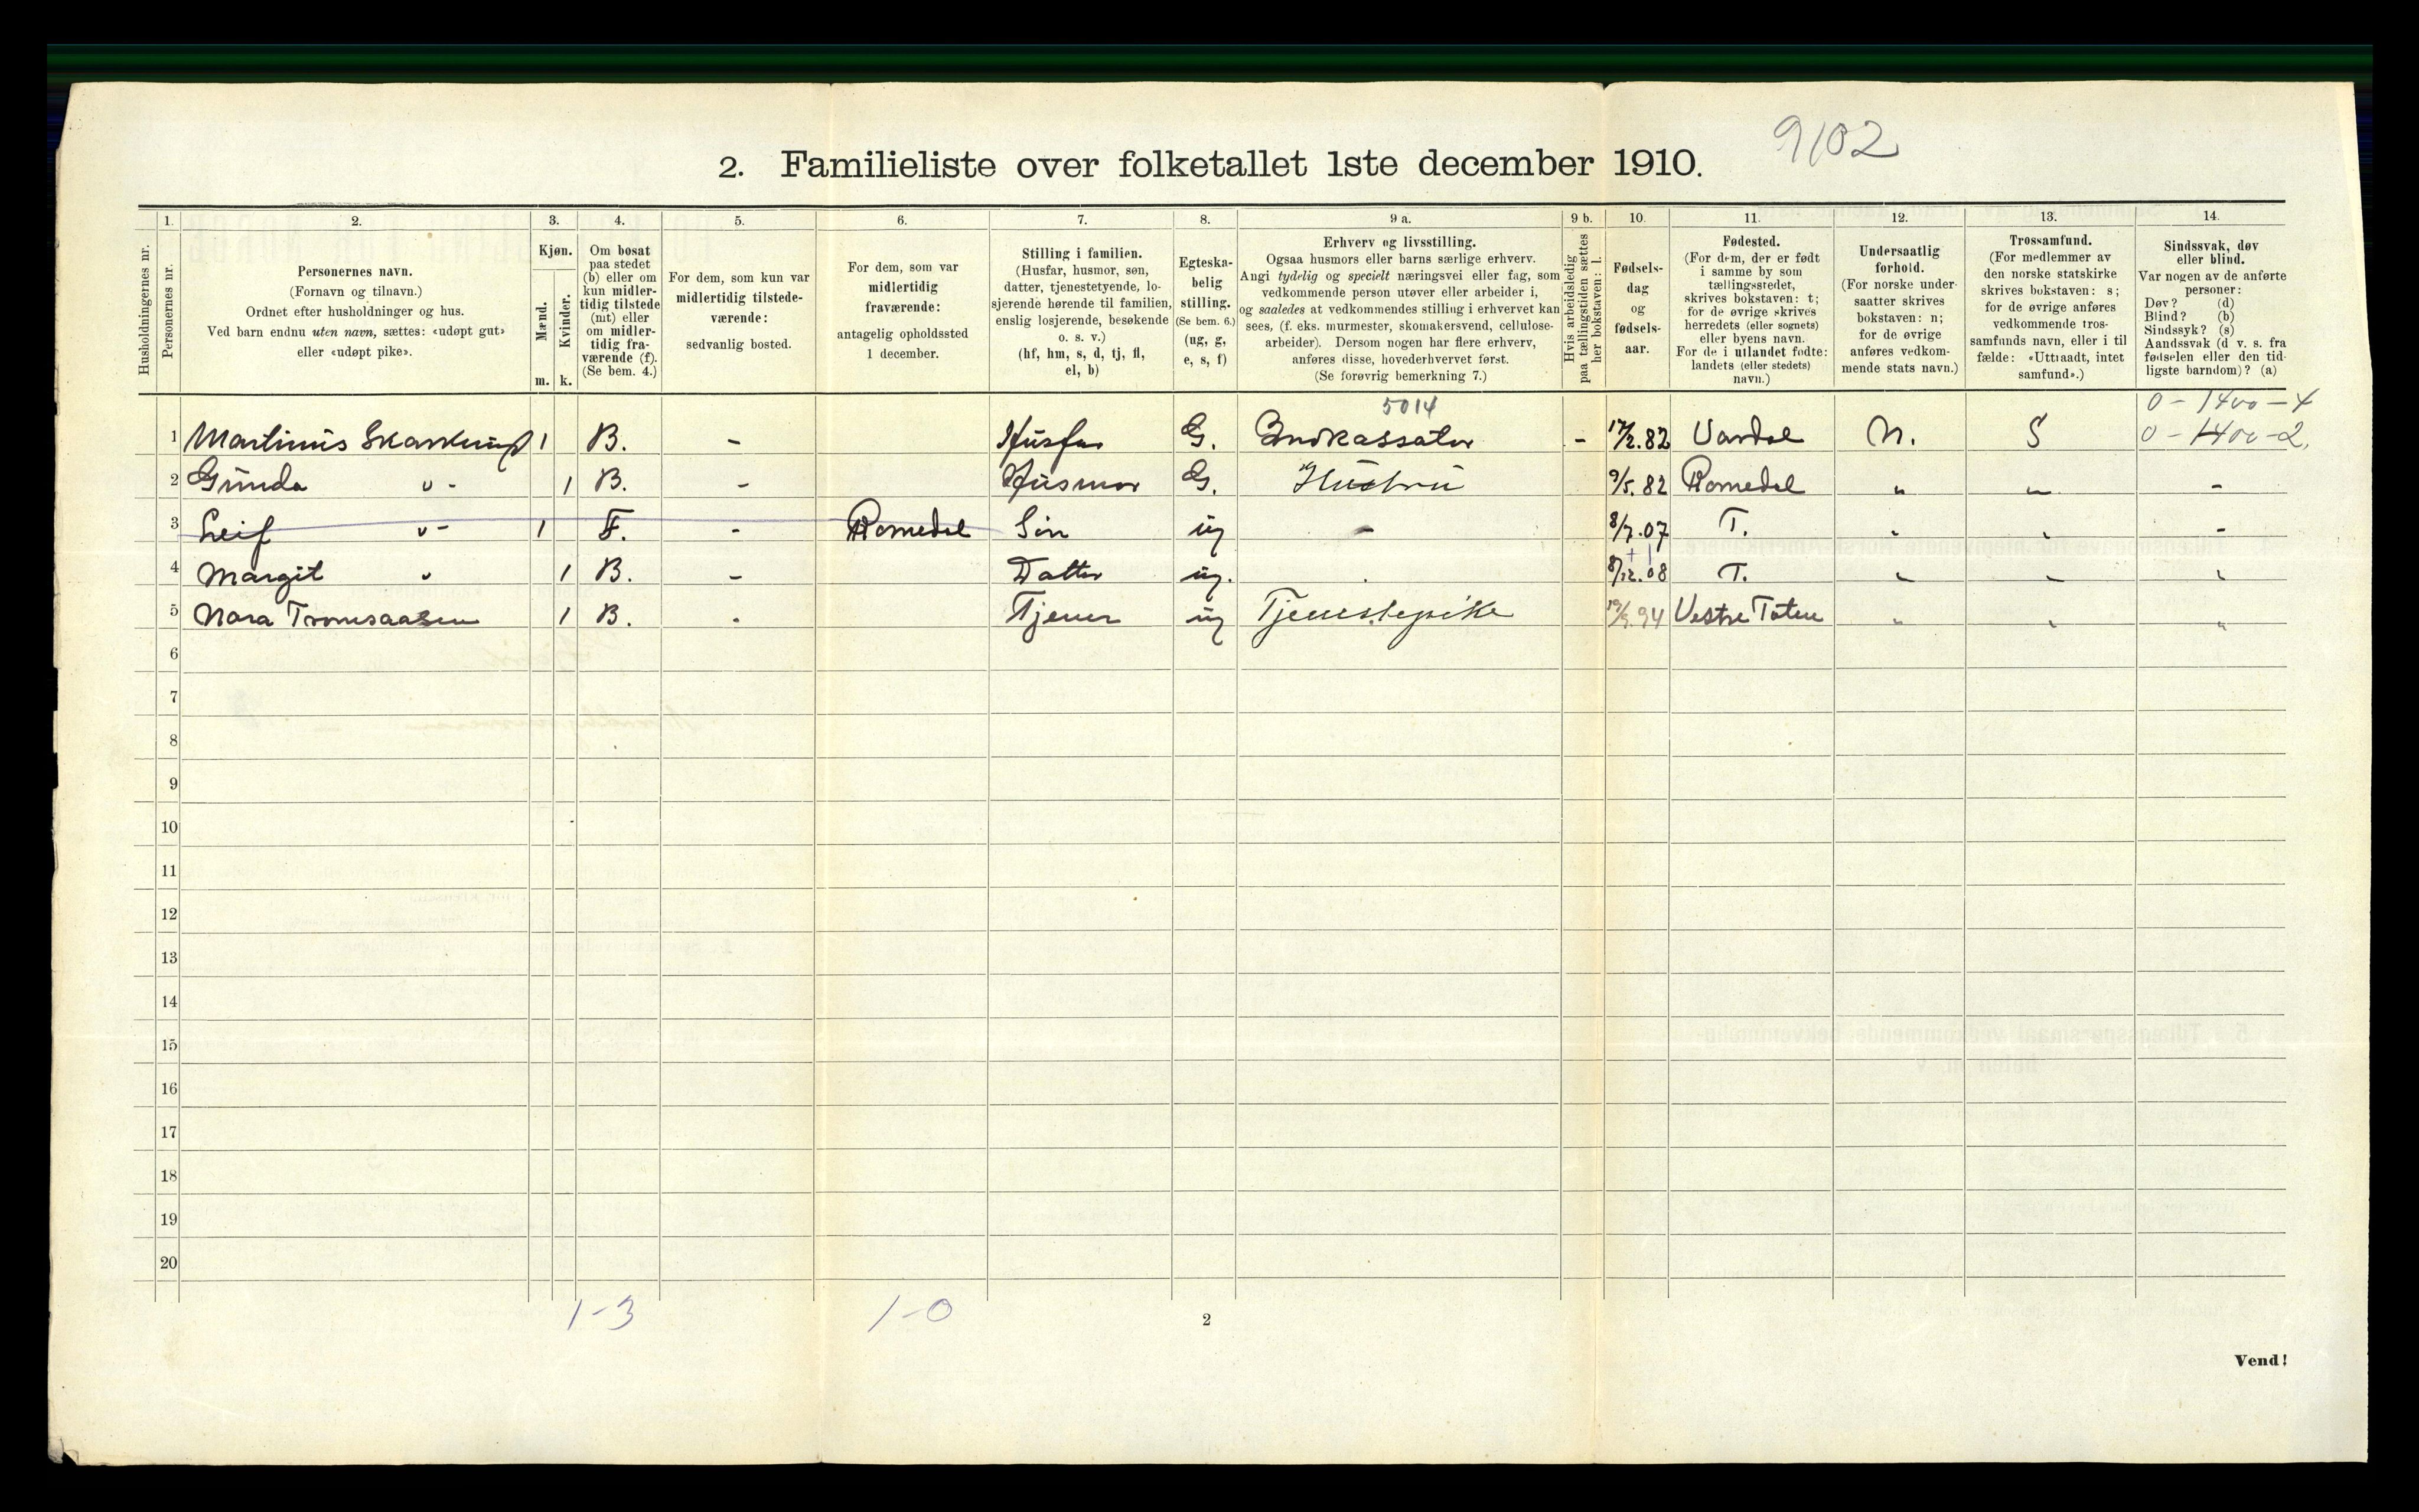 9102
2. Familieliste over folketallet 1ste december 1910.
Husholdningernes nr.
1. Personernes nr.
2.
Personernes navn.
(Fornavn og tilnavn.)
Ordnet efter husholdninger og hus.
Ved barn endnu uten navn, sættes: «udøpt gut»
eller «udøpt pike».
3.
Kjøn.
Mænd. m.
Kvinder. k.
4.
Om bosat
paa stedet
(b) eller om
kun midler-
tidig tilstede
(mt) eller
om midler-
tidig fra-
værende (f).
(Se bem. 4.)
5.
For dem, som kun var
midlertidig tilstede-
værende:
sedvanlig bosted.
6.
For dem, som var
midlertidig
fraværende:
antagelig opholdssted
1 december.
7.
Stilling i familien.
(Husfar, husmor, søn,
datter, tjenestetyende, lo-
sjerende hørende til familien,
enslig losjerende, besøkende
o. s. v.)
(hf, hm, s, d, tj, fl,
el, b)
8.
Egteska-
belig
stilling.
(Se bem. 6.)
(ug, g,
e, s, f)
9 a.
Erhverv og livsstilling.
Ogsaa husmors eller barns særlige erhverv.
Angi tydelig og specielt næringsvei eller fag, som
vedkommende person utøver eller arbeider i,
og saaledes at vedkommendes stilling i erhvervet kan
sees, (f. eks. murmester, skomakersvend, cellulose-
arbeider). Dersom nogen har flere erhverv,
anføres disse, hovederhvervet først.
(Se forøvrig bemerkning 7.)
9 b.
Hvis arbeidsledig
paa tællingstiden sættes
her bokstaven: l.
10.
Fødsels-
dag
og
fødsels-
aar.
11.
Fødested.
(For dem, der er født
i samme by som
tællingsstedet,
skrives bokstaven: t;
for de øvrige skrives
herredets (eller sognets)
eller byens navn.
For de i utlandet fødte:
landets (eller stedets)
navn.)
12.
Undersaatlig
forhold.
(For norske under-
saatter skrives
bokstaven: n;
for de øvrige
anføres vedkom-
mende stats navn.)
13.
Trossamfund.
(For medlemmer av
den norske statskirke
skrives bokstaven: s;
for de øvrige anføres
vedkommende tros-
samfunds navn, eller i til
fælde: «Uttraadt, intet
samfund».)
14.
Sindssvak, døv
eller blind.
Var nogen av de anførte
personer:
Døv? (d)
Blind? (b)
Sindssyk? (s)
Aandssvak (d v. s. fra
fødselen eller den tid-
ligste barndom)? (a)
5014 0 - 1400 - 4
1 Martinus Skarstrup 1 B. - Husfar G. Indkassator - 17/2.82 Vardal N. S 0 - 1400 - 2.
2 Gunda " - 1 B. - Husmor G. Hustru 9/5.82 Romedal " " -
3 Leif " - 1 F. - Romedal Sön ug - 8/7.07 T. " " -
4 Margit " 1 B. - Datter ug. . 8/12.08 T. " " "
5 Nora Tromsaasen 1 B. . Tjener ug Tjenestepike 19/9.94 Vestre Toten " " "
6
7
8
9
10
11
12
13
14
15
16
17
18
19
20
1-3 1-0
2
Vend!